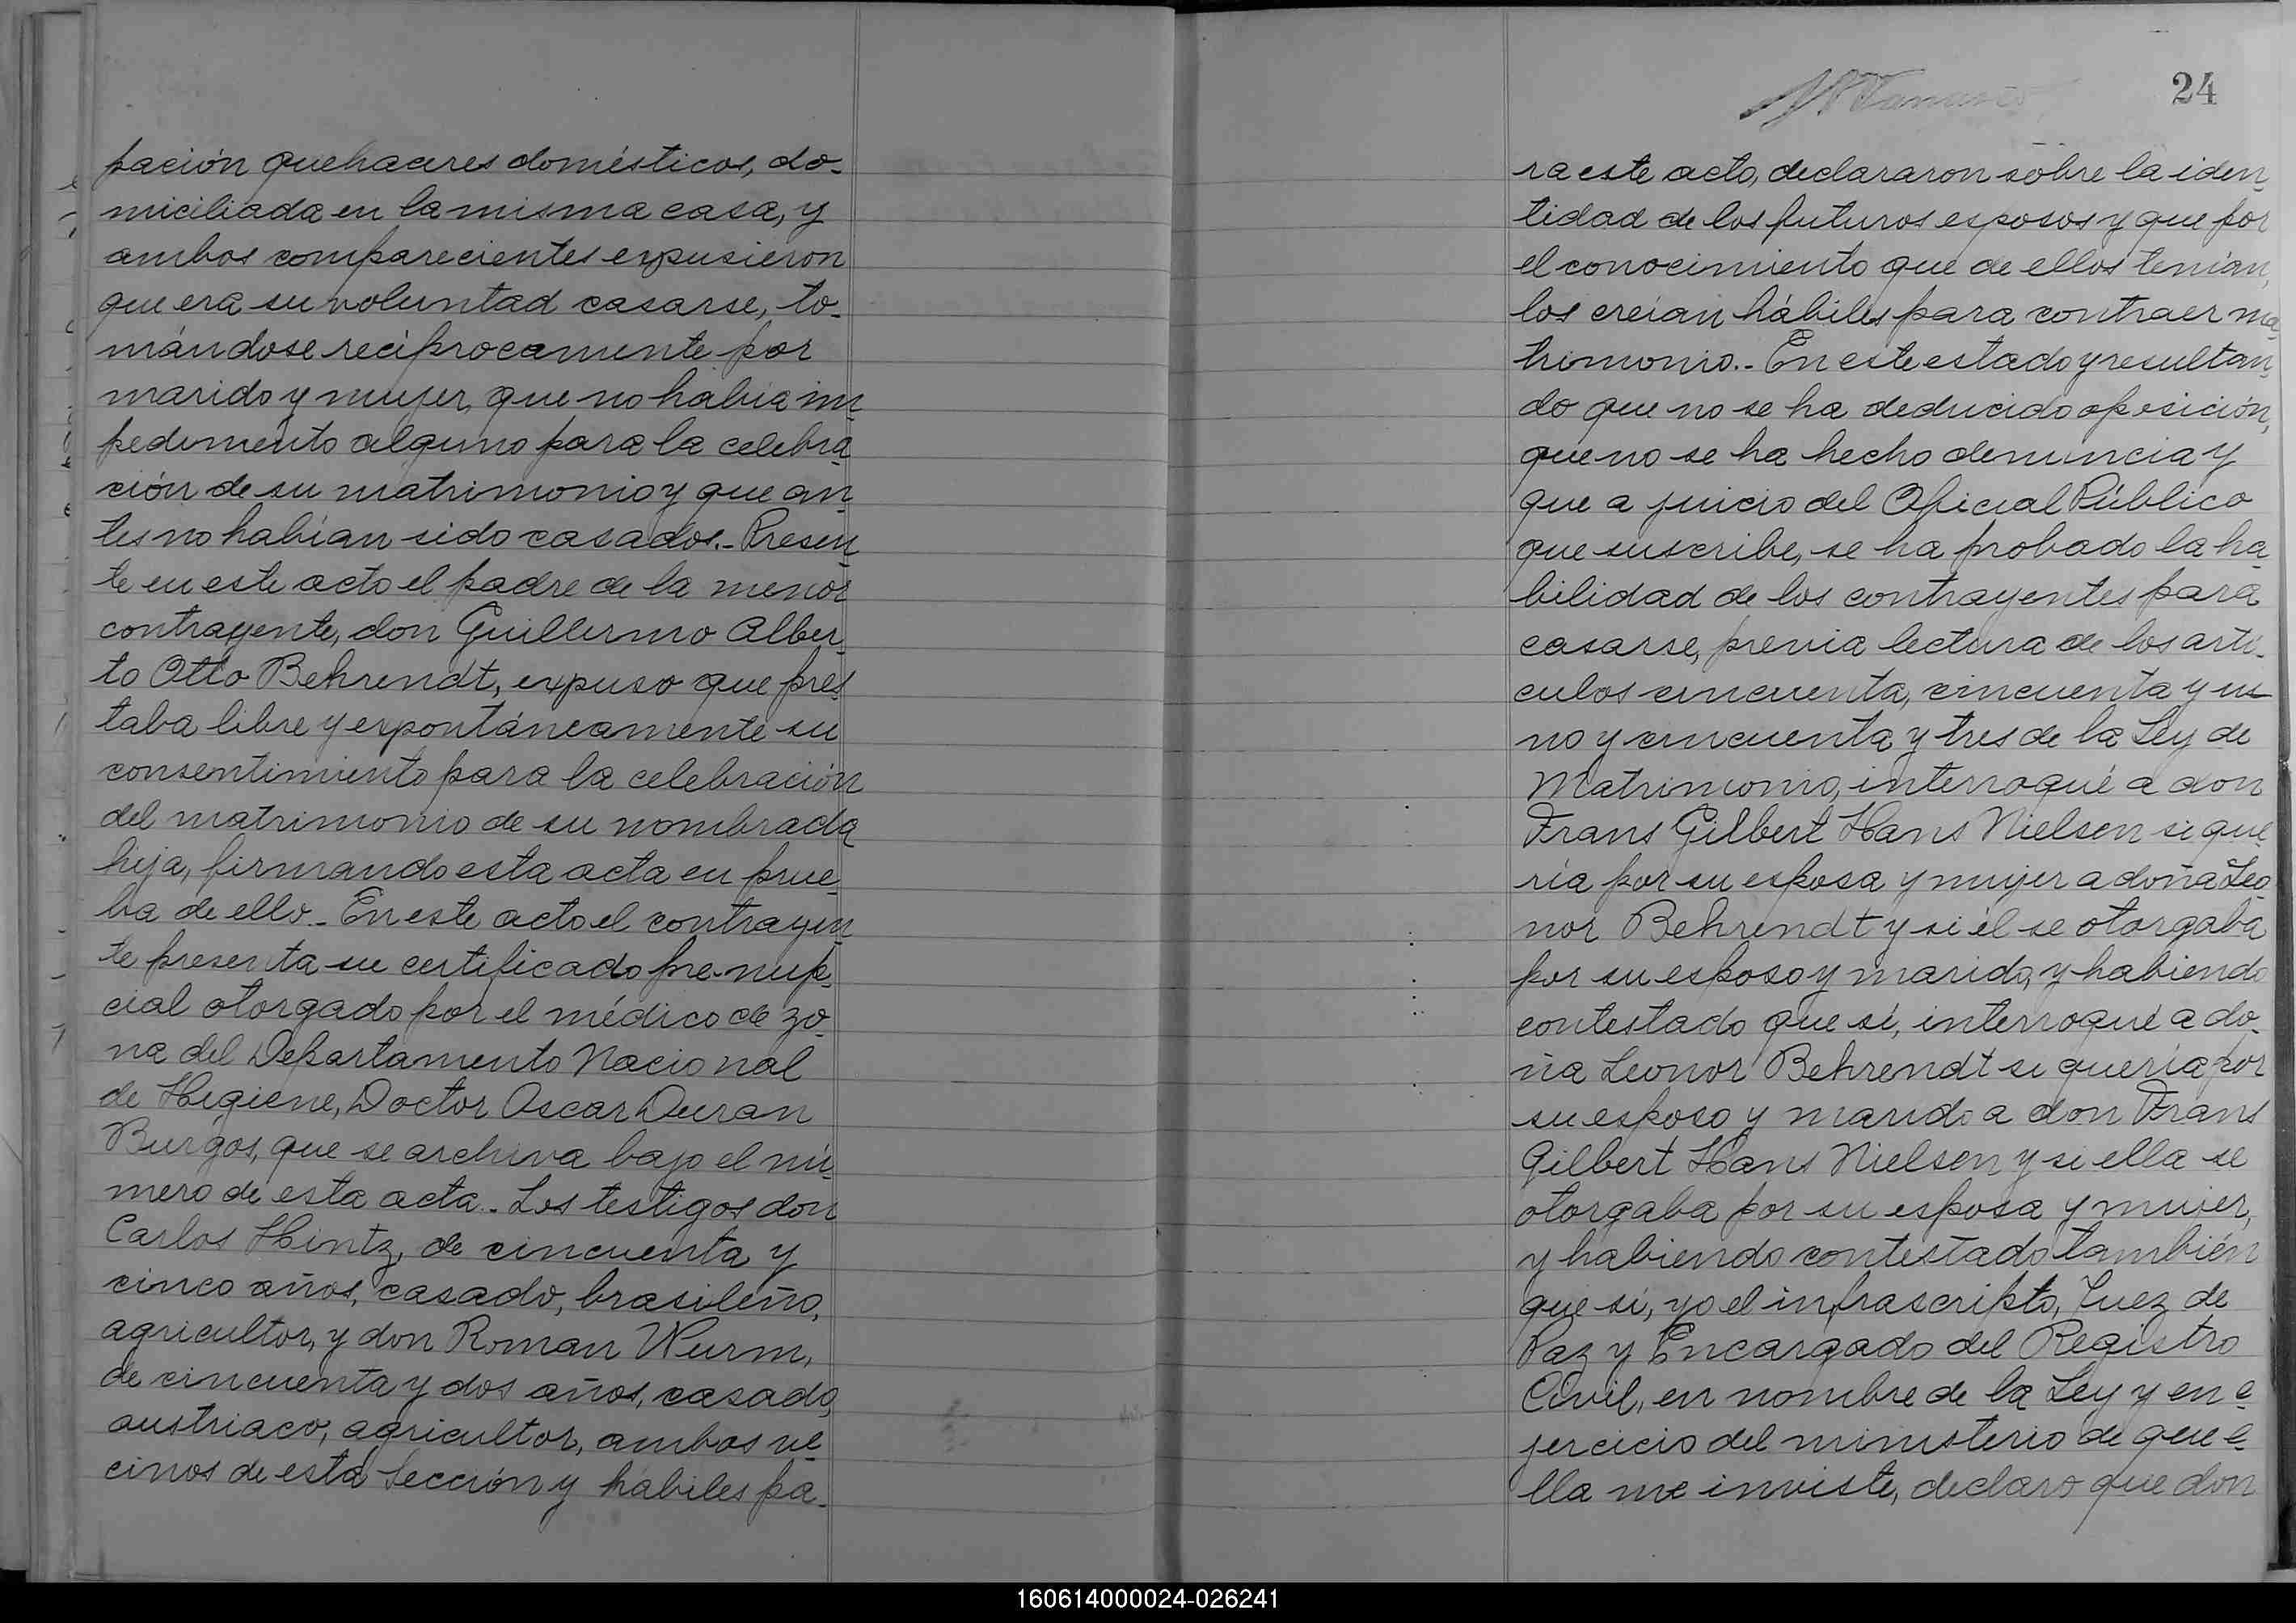 pación quehaceres domésticos, do-
miciliada en la misma casa, y
ambos comparecientes expusieron
que era su voluntad casarse, to-
mándose recíprocamente por
marido y mujer, que no había im-
pedimento alguno para la celebra-
ción de su matrimonio y que an-
tes no habían sido casados.- Presen-
te en este acto el padre de la menor
contrayente, don Guillermo Alber-
to Otto Behrendt, expuso que pres-
taba libre y expontáneamente su
consentimiento para la celebración
del matrimonio de su nombrada
hija, firmando esta acta en prue-
ba de ello.- En este acto el contrayen-
te presenta su certificado pre-nup-
cial otorgado por el médico de zo-
na del Departamento Nacional
de Higiene, Doctor Oscar Duran
Burgos, que se archiva bajo el nú-
mero de esta acta.- Los testigos don
Carlos Hintz, de cincuenta y
cinco años, casado, brasileño,
agricultor, y don Roman Wurm,
de cincuenta y dos años, casado,
austriaco, agricultor, ambos ve-
cinos de esta Sección y hábiles pa-
24
ra este acto, declararon sobre la iden-
tidad de los futuros esposos y que por
el conocimiento que de ellos tenían,
los creían hábiles para contraer ma-
trimonio.- En este estado y resultan-
do que no se ha deducido oposición,
que no se ha hecho denuncia y
que a juicio del Oficial Público
que suscribe, se ha probado la ha-
bilidad de los contrayentes para
casarse, previa lectura de los artí-
culos cincuenta, cincuenta y u-
no y cincuenta y tres de la Ley de
Matrimonio, interrogué a don
Frans Gilbert Hans Nielsen si que-
ría por su esposa y mujer a doña Leo-
nor Behrendt y si él se otorgaba
por su esposo y marido, y habiendo
contestado que sí, interrogué a do-
ña Leonor Behrendt si quería por
su esposo y marido a don Frans
Gilbert Hans Nielsen y si ella se
otorgaba por su esposa y mujer,
y habiendo contestado también
que sí, yo el infrascripto, Juez de
Paz y Encargado del Registro
Civil, en nombre de la Ley y en e-
jercicio del ministerio de que e-
lla me inviste, declaro que don
160614000024-026241